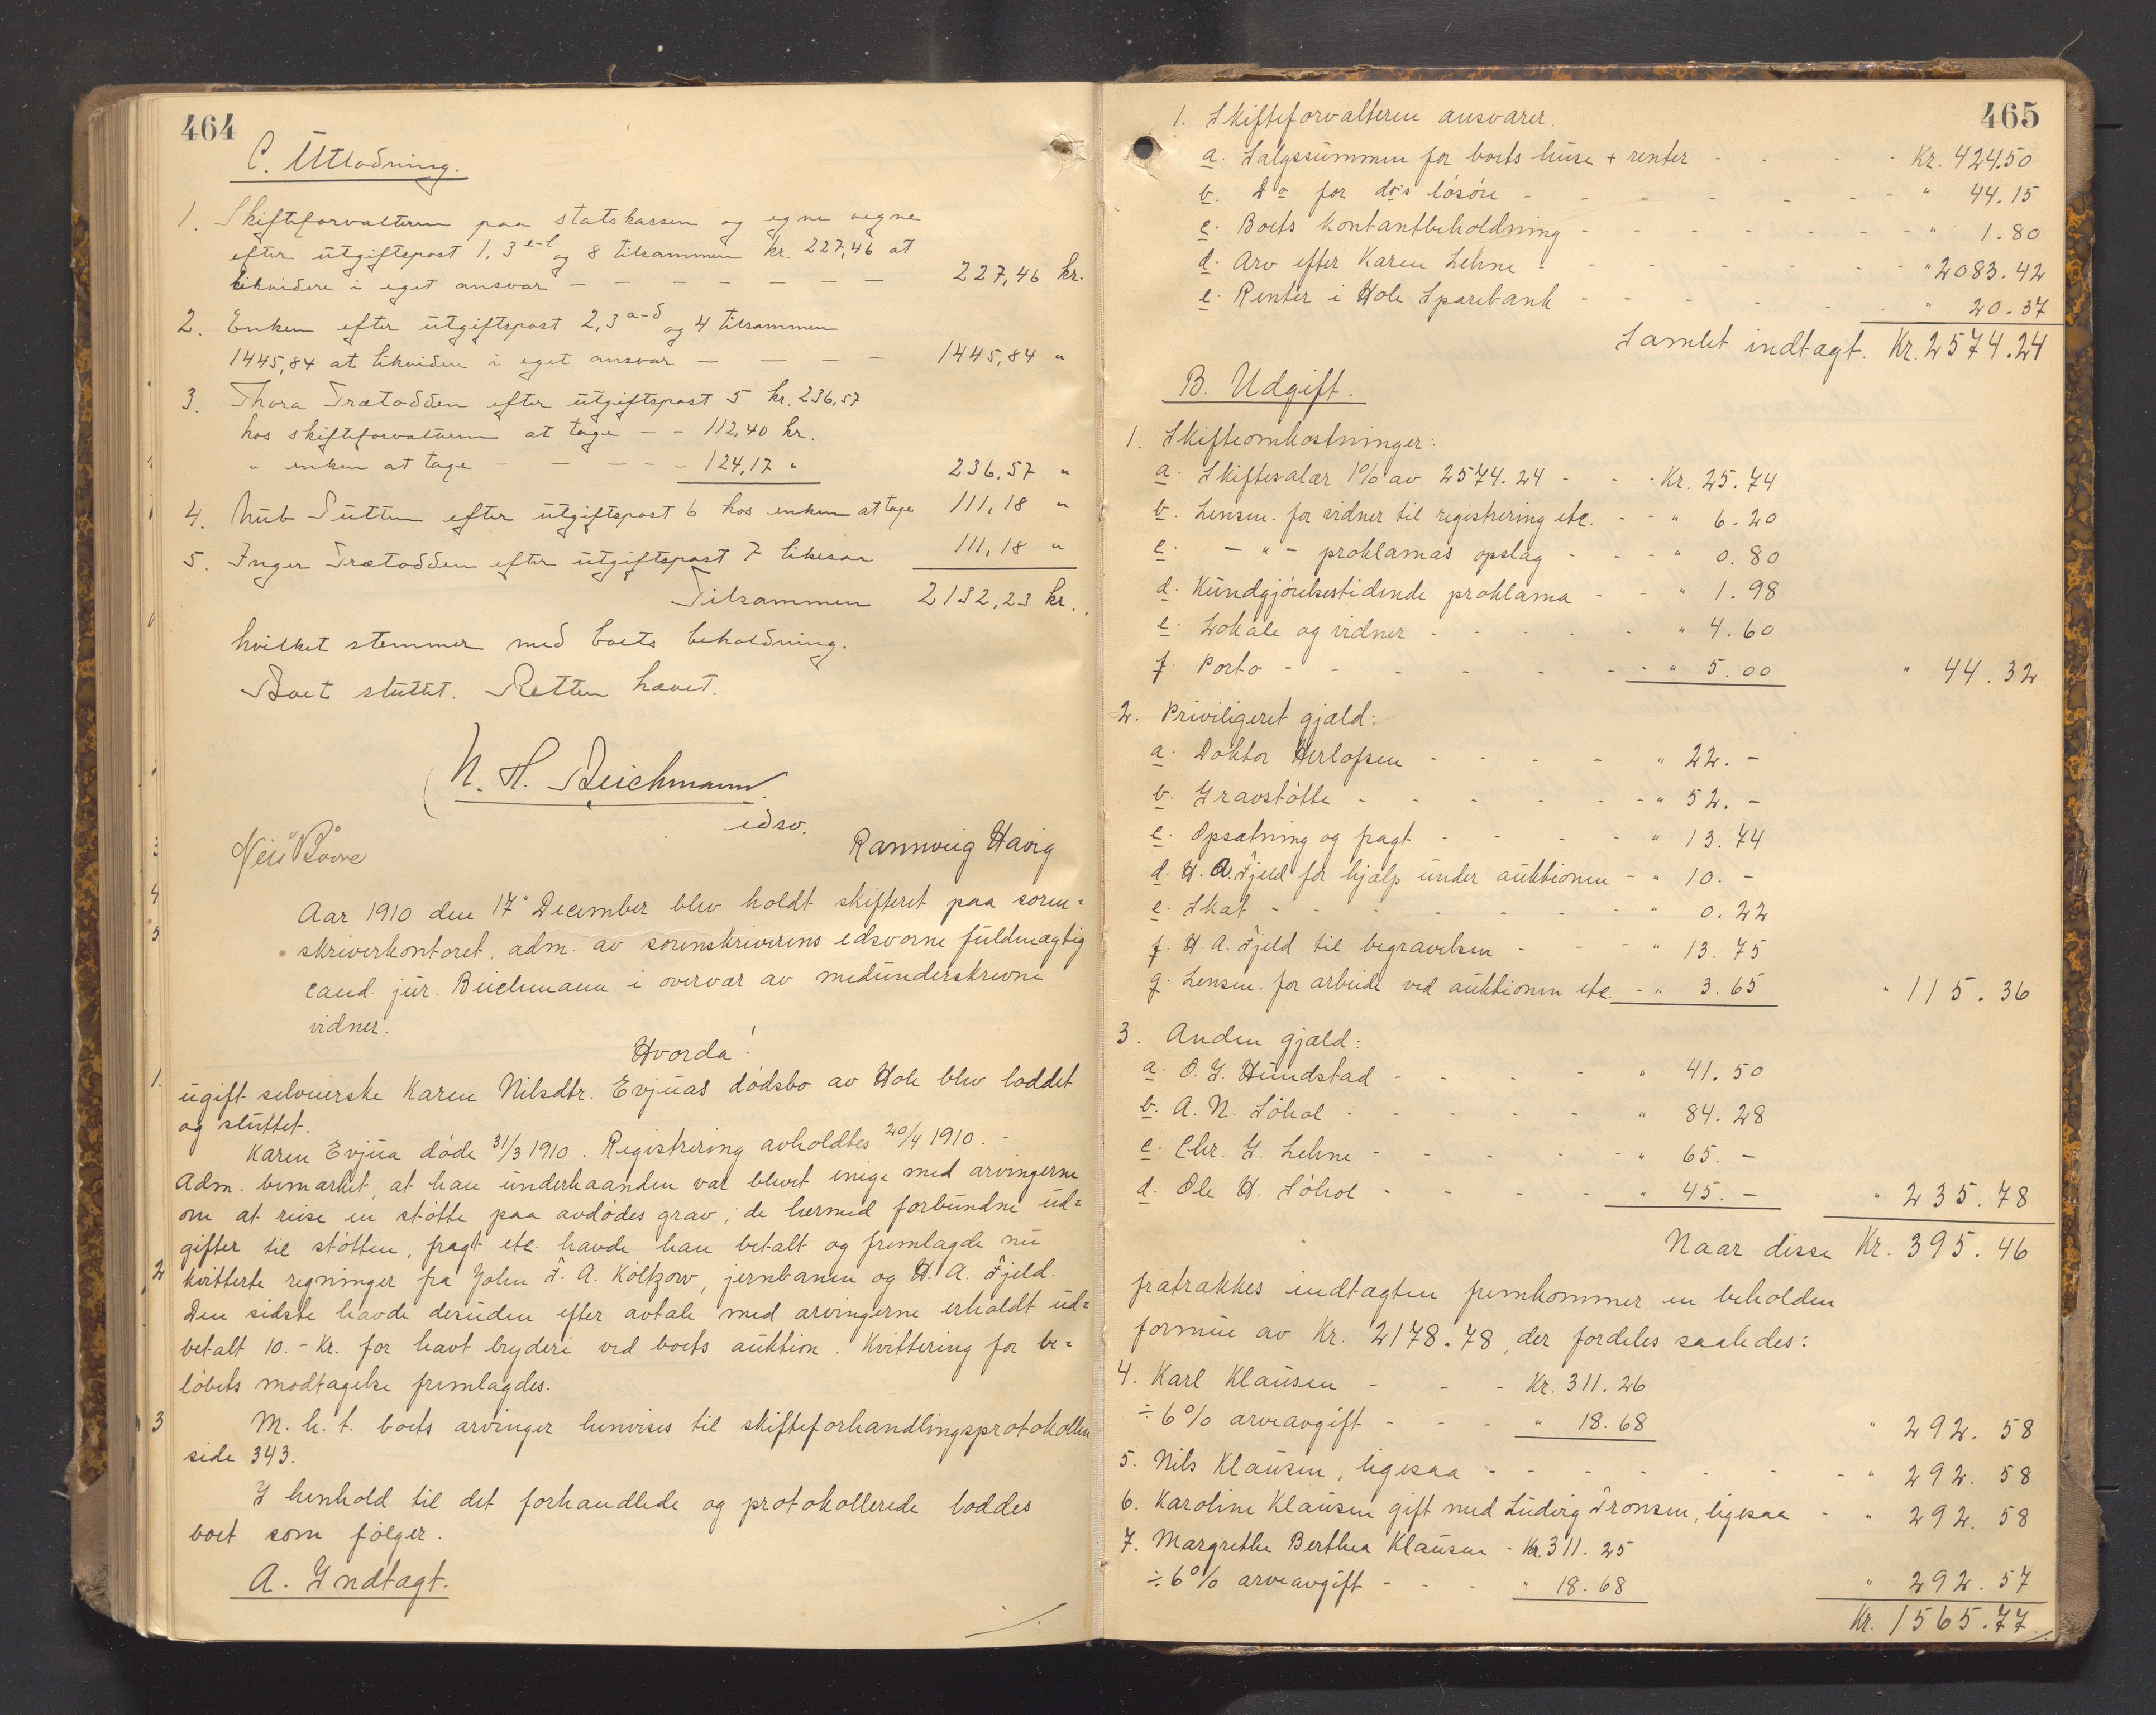 464
C. Utlodning.
1. Skifteforvalteren paa statskassen og egne vegne
efter utgiftspost 1, 3 e-l og 8 tilsammen kr. 227,46 at
likvidere i eget ansvar — — — — — — — 227,46 kr.
2. Enken efter utgiftspost 2, 3 a-d og 4 tilsammen
1445,84 at likvidere i eget ansvar — — — — 1445,84 "
3. Thora Trætodden efter utgiftspost 5 kr. 236,57
hos skifteforvalteren at tage — — 112,40 kr.
" enken at tage — — — — — 124,17 " 236,57 "
4. Nub Tutten efter utgiftspost 6 hos enken at tage 111,18 "
5. Inger Trætodden efter utgiftspost 7 likesaa 111,18 "
Tilsammen 2132,23 kr.
hvilket stemmer med boets beholdning.
Boet sluttet. Retten hævet.
N. H. Beichmann
edsv.
Rannveig Havig
Aar 1910 den 17" December blev holdt skifteret paa soren=
skriverkontoret, adm. av sorenskriverens edsvorne fuldmægtig
cand. jur. Beichmann i overvær av medunderskrevne
vidner.
Hvorda!
1. ugift selveierske Karen Nilsdtr. Evjuas dødsbo av Hole blev loddet
og sluttet.
Karen Evjua døde 31/3 1910. Registrering avholdtes 20/4 1910. -
Adm. bemærket, at han underhaanden var blevet enige med arvingerne
om at reise en støtte paa avdødes grav; de hermed forbundne ud=
gifter til støtten, fragt etc. havde han betalt og fremlagde nu
2 kvitterte regninger fra John F. A. Koltzow, jernbanen og H. A. Fjeld.
Den sidste havde desuden efter avtale med arvingerne erholdt ud=
betalt 10.- Kr. for havt bryderi ved boets auktion. Kvittering for be=
løbets modtagelse fremlagdes.
3 M. h. t. boets arvinger henvises til skifteforhandlingsprotokollen
side 343.
I henhold til det forhandlede og protokollerede loddes
boet som følger.
A. Indtægt.
465
1. Skifteforvalteren ansvarer.
a. Salgssummen for boets huse + renter - - - - Kr. 424.50
b. Do for do's løsøre - - - - - - - " 44.15
c. Boets kontantbeholdning - - - - - - - " 1.80
d. Arv efter Karen Lehne - - - - - - - " 2083.42
e. Renter i Hole Sparebank - - - - - " 20.37
Samlet indtægt. Kr. 2574.24
B. Udgift.
1. Skifteomkostninger:
a. Skiftesalær 1% av 2574.24 - - - Kr. 25.74
b. Lensm. for vidner til registrering etc. - - " 6.20
c. - " - proklamas opslag - - - " 0.80
d. Kundgjørelsestidende proklama - - " 1.98
e. Lokale og vidner - - - - - " 4.60
f. Porto - - - - - - " 5.00 " 44.32
2. Priviligeret gjæld:
a. Doktor Herlofsen - - - - " 22. -
b. Gravstøtte - - - - - - " 52. -
c. Opsætning og fragt - - - - " 13.74
d. H. A. Fjeld for hjælp under auktionen - " 10. -
e. Skat - - - - - - - " 0.22
f. H. A. Fjeld til begravelsen - - - " 13.75
g. Lensm. for arbeide ved auktionen etc. - " 3.65 " 115.36
3. Anden gjæld:
a. O. G. Hundstad - - - - " 41.50
b. A. N. Søhol - - - - - " 84.28
c. Chr. G. Lehne - - - - - " 65. -
d. Ole H. Søhol - - - - " 45. - " 235.78
Naar disse Kr. 395.46
fratrækkes indtægten fremkommer en beholden
formue av Kr. 2178.78, der fordeles saaledes:
4. Karl Klausen - - - Kr. 311.26
÷ 6% arveavgift - - - " 18.68 " 292.58
5. Nils Klausen, ligesaa - - - - - - " 292.58
6. Karoline Klausen gift med Ludvig Fronsen, ligesaa - " 292.58
7. Margrethe Berthea Klausen - Kr. 311.25
÷ 6% arveavgift - - - " 18.68 " 292.57
Kr. 1565.77